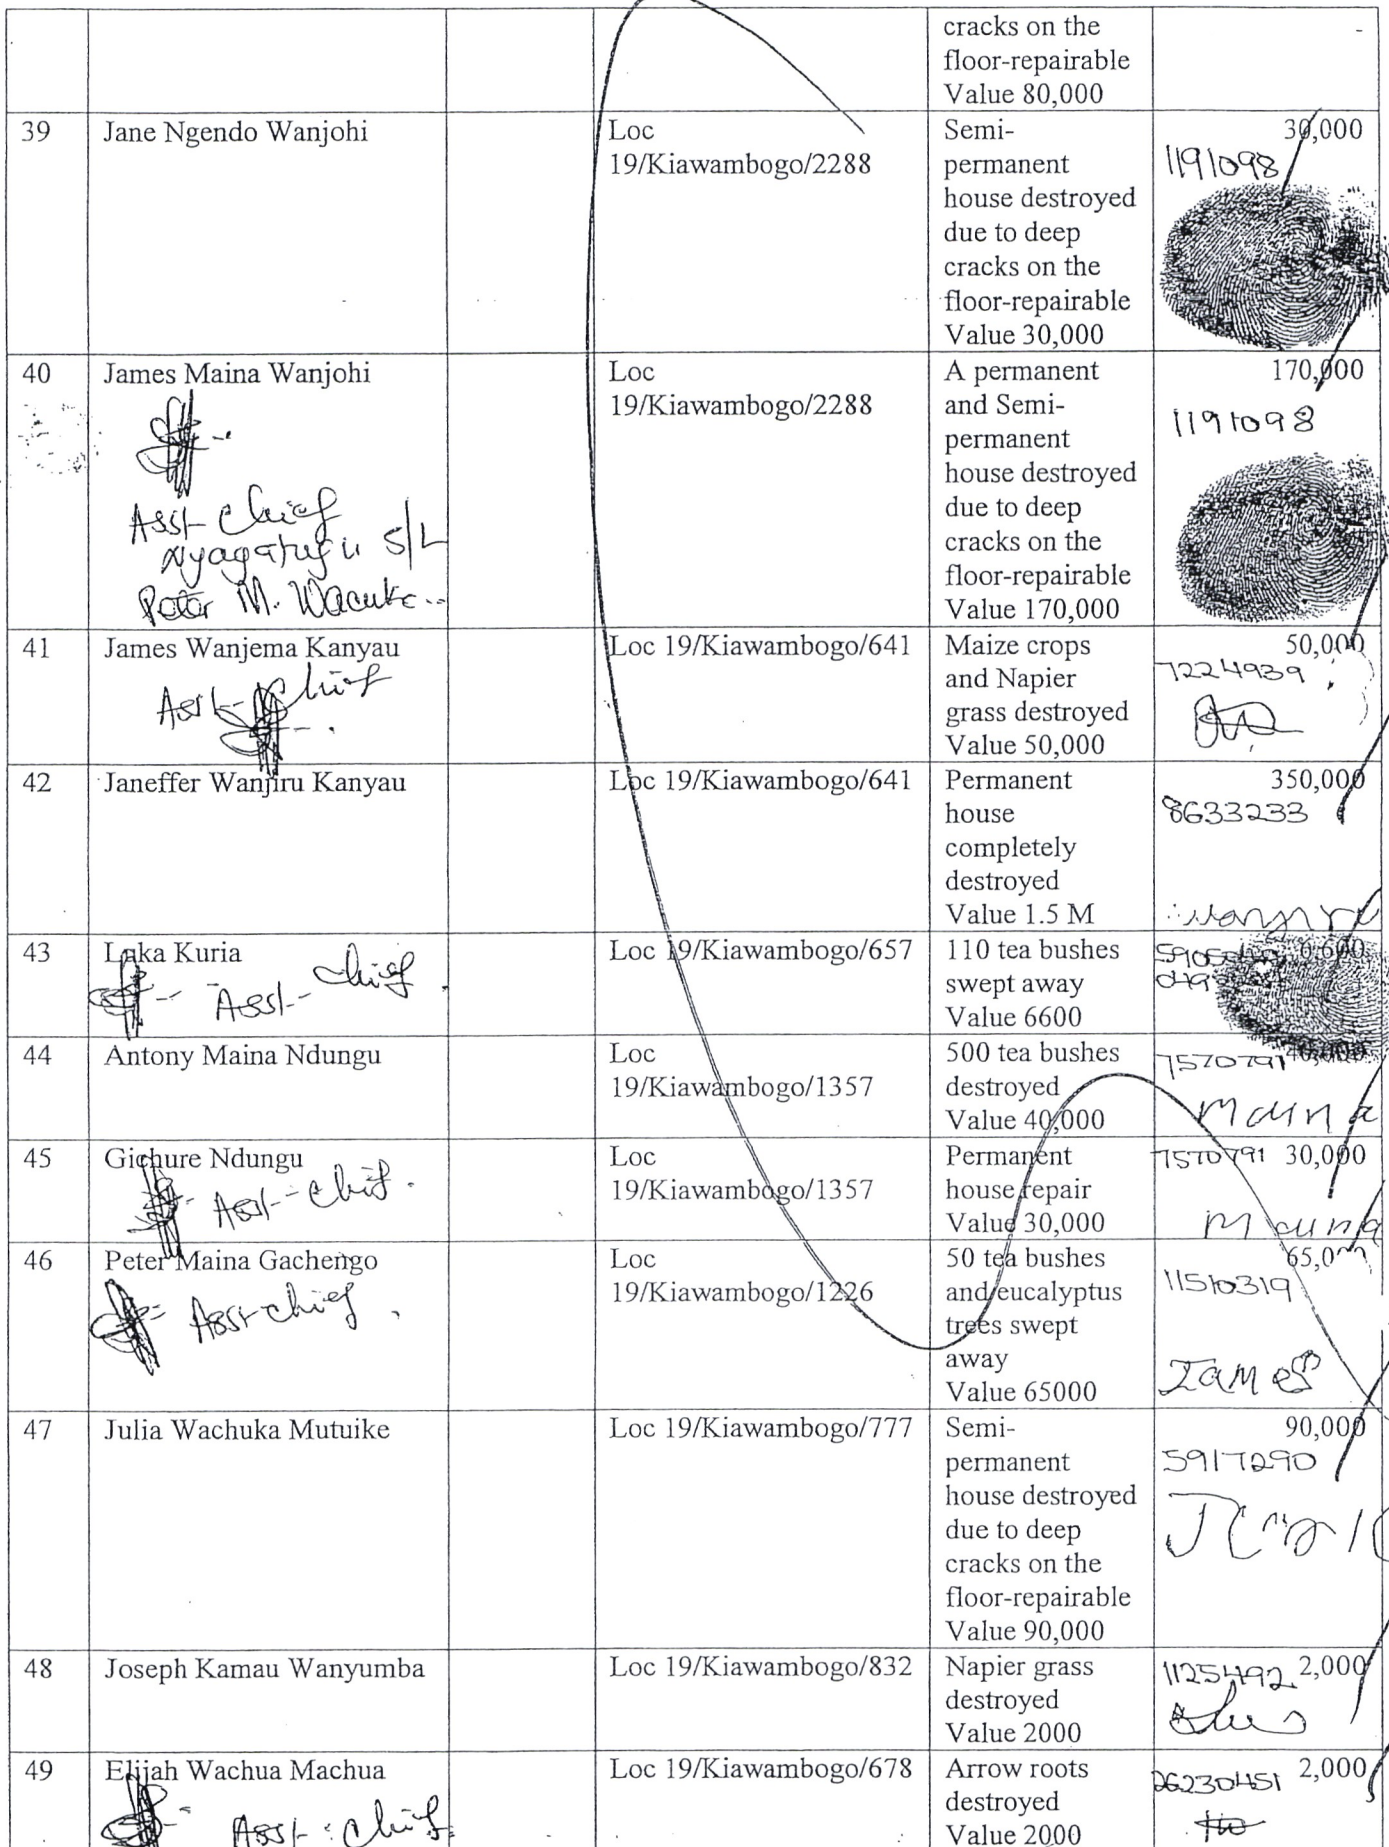 cracks on the
floor-repairable
Value 80,000
39 Jane Ngendo Wanjohi Loc 30,000
19/Kiawambogo/2288
Semi-
permanent
house destroyed
due to deep
cracks on the
floor-repairable
Value 30,000
1191098
40 James Maina Wanjohi Loc 170,000
19/Kiawambogo/2288
Asst Chief
S/L
Peter M. Wacuke
A permanent
and Semi-
permanent
house destroyed
due to deep
cracks on the
floor-repairable
Value 170,000
1191098
41 James Wanjema Kanyau Loc 19/Kiawambogo/641 50,000
Asst-Chief
Maize crops
and Napier
grass destroyed
Value 50,000
7224939
42 Janeffer Wanjiru Kanyau Loc 19/Kiawambogo/641 350,000
Permanent
house
completely
destroyed
Value 1.5 M
8633233
43 Luka Kuria Loc 19/Kiawambogo/657
Asst- chief
110 tea bushes
swept away
Value 6600
44 Antony Maina Ndungu Loc
19/Kiawambogo/1357
500 tea bushes
destroyed
Value 40,000
7570791
Maina
45 Gichure Ndungu Loc 30,000
19/Kiawambogo/1357
Asst- Chief
Permanent
house repair
Value 30,000
7570791
Maina
46 Peter Maina Gachengo Loc
19/Kiawambogo/1226
Asst chief
50 tea bushes
and eucalyptus
trees swept
away
Value 65000
11510319
James
47 Julia Wachuka Mutuike Loc 19/Kiawambogo/777 90,000
Semi-
permanent
house destroyed
due to deep
cracks on the
floor-repairable
Value 90,000
5917290
48 Joseph Kamau Wanyumba Loc 19/Kiawambogo/832 2,000
Napier grass
destroyed
Value 2000
11251492
49 Elijah Wachua Machua Loc 19/Kiawambogo/678 2,000
Asst: Chief
Arrow roots
destroyed
Value 2000
26230451